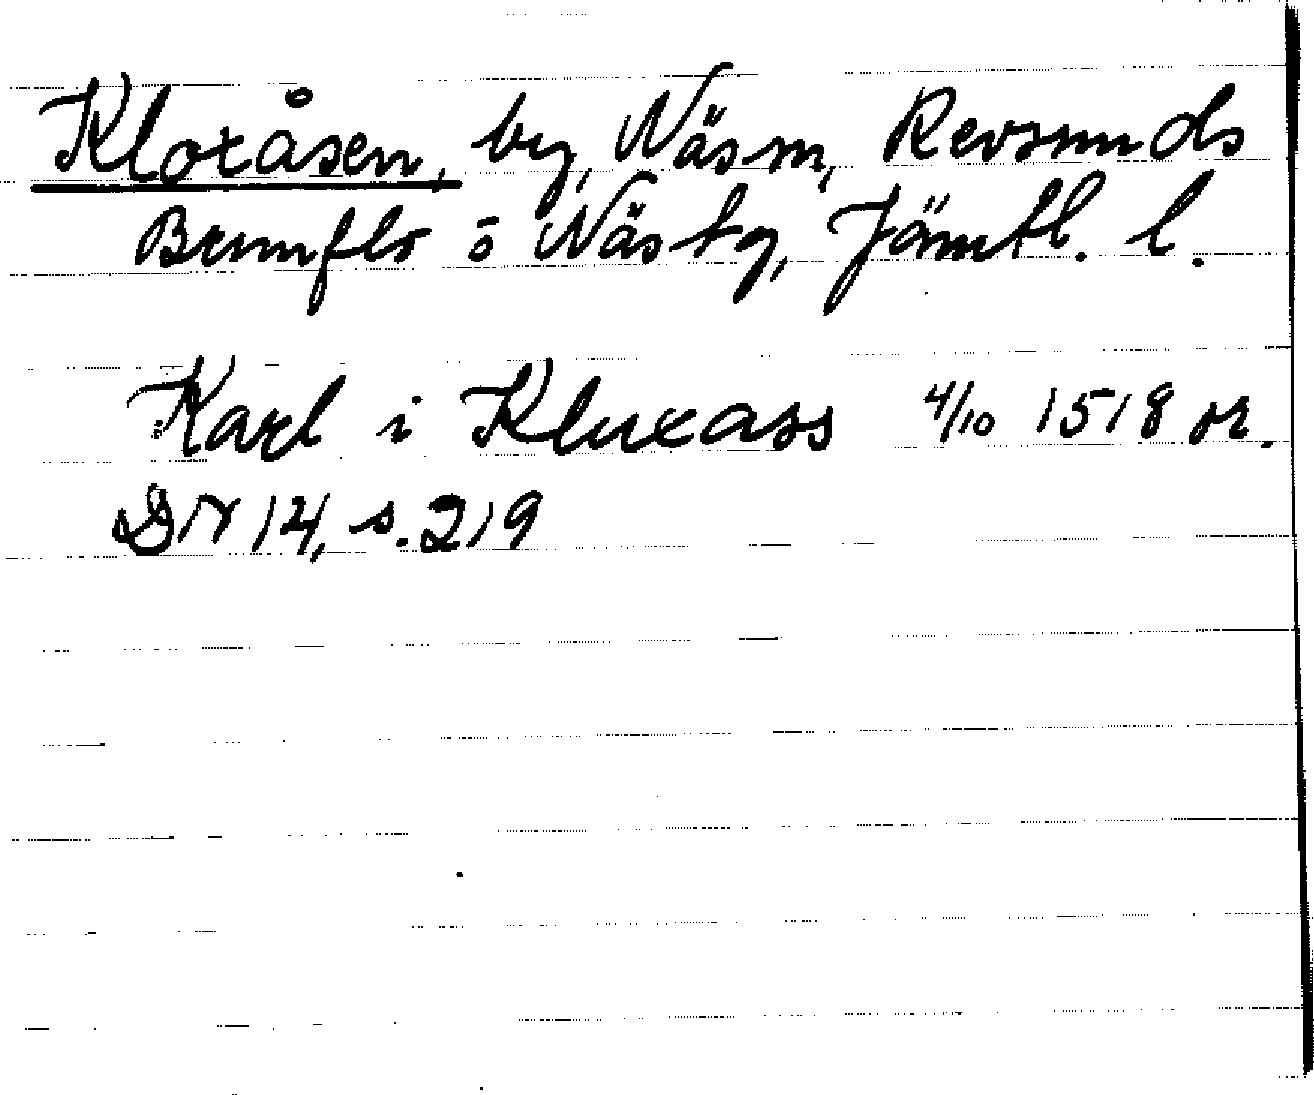 Kloxåsen, by, Näs sn, Revsunds
Brunflo o Näs tg, Jämtl. l.
Karl i Kluxass 4/10 1518 or.
DN 14, s. 219